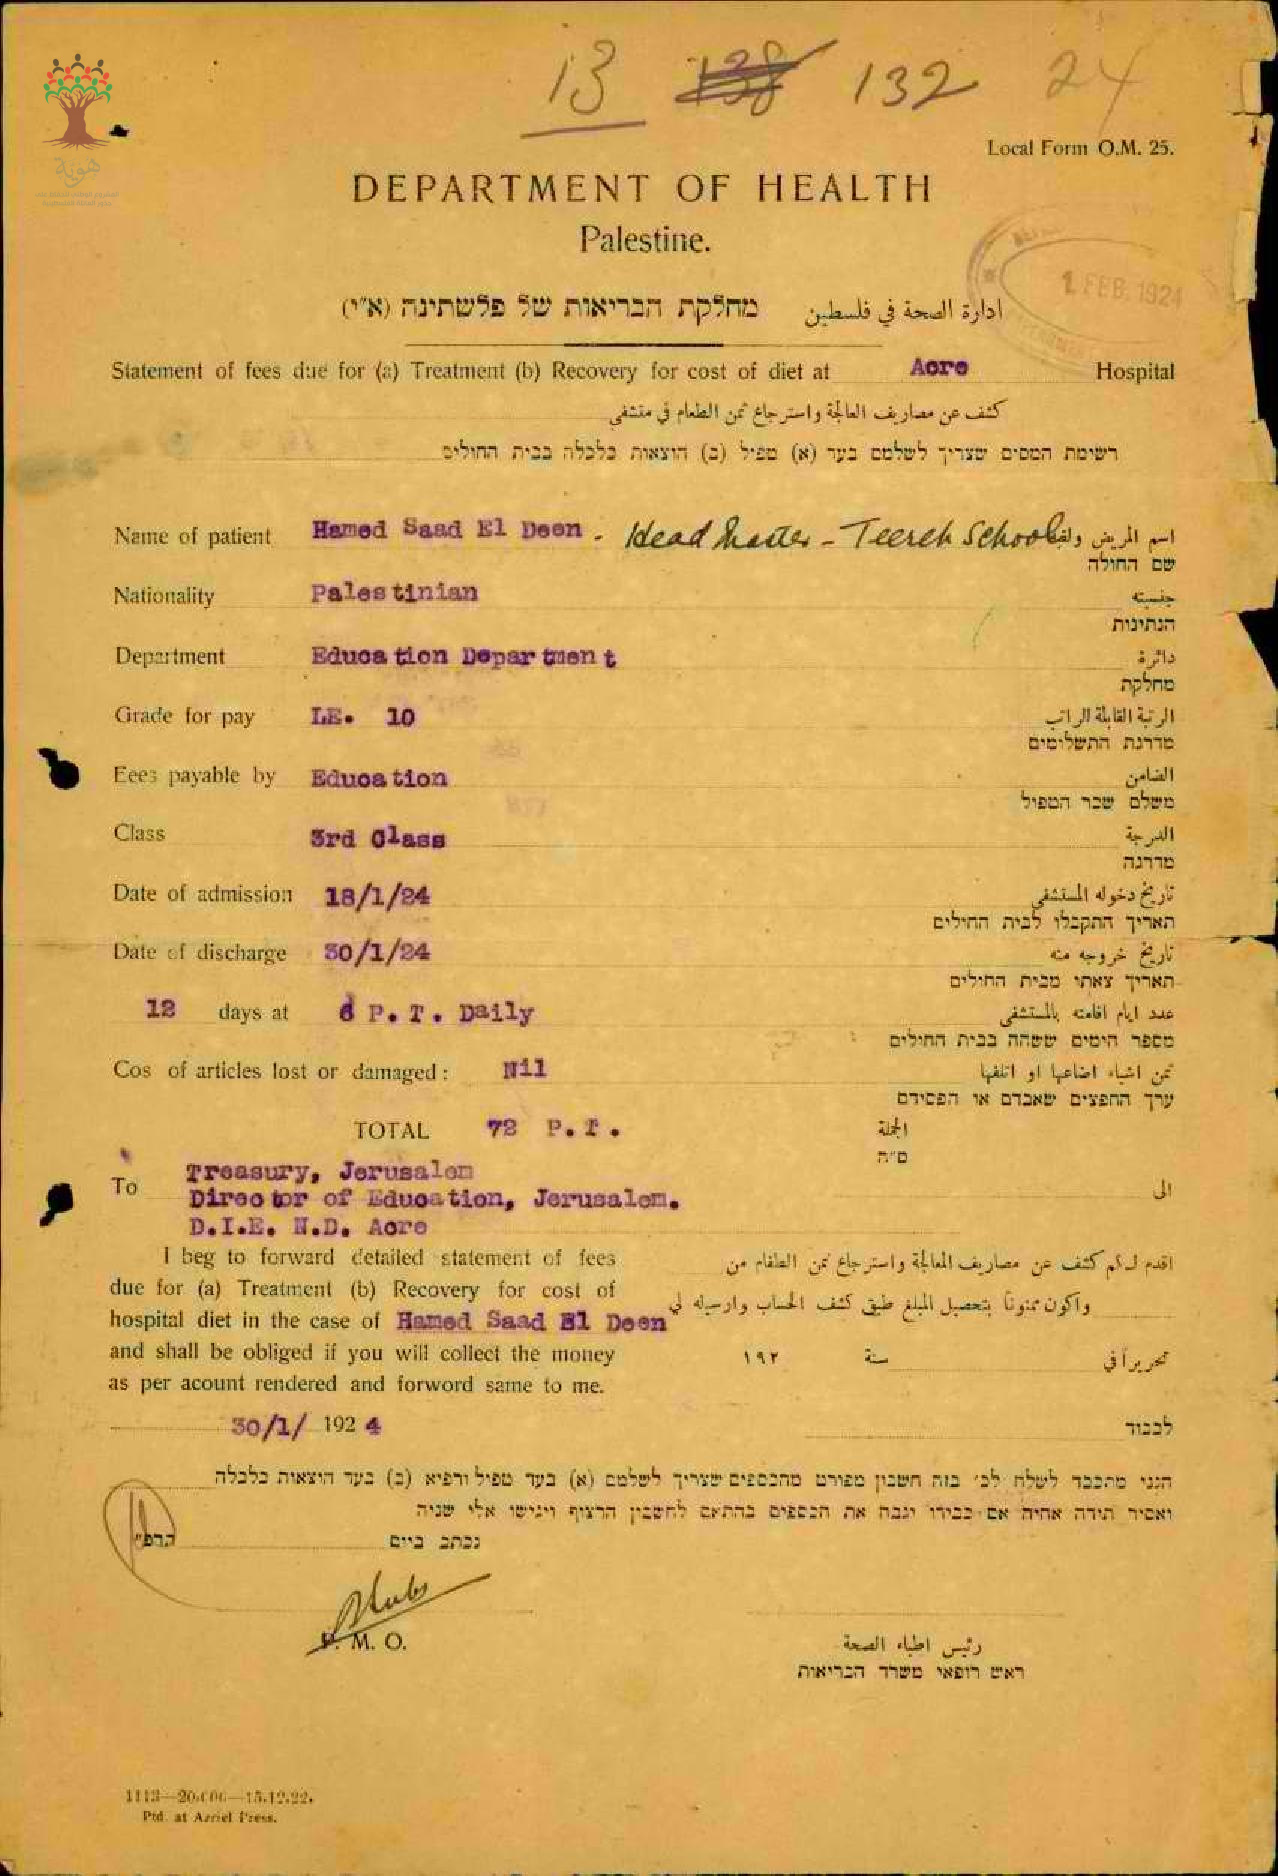 13 138 132 24
Local Form O.M. 25.
هوية
DEPARTMENT OF HEALTH
Palestine.
1 FEB. 1924
מחלקת הבריאות של פלשתינה (א״י) ادارة الصحة في فلسطين
Statement of fees due for (a) Treatment (b) Recovery for cost of diet at Acre Hospital
كشف عن مصاريف المعالجة واسترجاع ثمن الطعام في مستشفى
רשימת המסים שצריך לשלמם בעד (א) טפול (ב) הוצאות כלכלה בבית החולים
Name of patient Hamed Saad El Deen - Head Master - Teereh School اسم المريض
שם החולה
Nationality Palestinian جنسيته
הנתינות
Department Education Department دائرة
מחלקת
Grade for pay LE. 10 الرتبة القابلة الراتب
מדרגת התשלומים
Fees payable by Education الضامن
משלם שכר הטפול
Class 3rd Class الدرجة
מדרגה
Date of admission 18/1/24 تاريخ دخوله المستشفى
תאריך התקבלו לבית החולים
Date of discharge 30/1/24 تاريخ خروجه منه
תאריך צאתו מבית החולים
12 days at 6 P.T. Daily عدد ايام اقامته بالمستشفى
מספר הימים ששהה בבית החולים
Cos of articles lost or damaged: Nil ثمن اشياء اضاعها او اتلفها
ערך החפצים שאבדם או הפסידם
TOTAL 72 P.T. الجملة
ס״ה
To Treasury, Jerusalem الى
Director of Education, Jerusalem.
D.I.E. N.D. Acre
I beg to forward detailed statement of fees
due for (a) Treatment (b) Recovery for cost of
hospital diet in the case of Hamed Saad El Deen
and shall be obliged if you will collect the money
as per acount rendered and forword same to me.
اقدم لكم كشف عن مصاريف المعالجة واسترجاع ثمن الطعام من
واكون ممنوناً بتحصيل المبلغ طبق كشف الحساب وارسيله لي
تحريراً في سنة ١٩٢
30/1/ 1924 לכבוד
הנני מתכבד לשלח לכ׳ בזה חשבון מפורט מהכספים שצריך לשלמם (א) בעד טפול ורפוא (ב) בעד הוצאות כלכלה
ואסיר תודה אהיה אם כבודו יגבה את הכספים בהתאם לחשבון הרצוף ויגישו אלי שניה
נכתב ביום
P. M. O.
رئيس اطباء الصحة
ראש רופאי משרד הבריאות
1113—20.000—15.12.22.
Ptd. at Azriel Press.